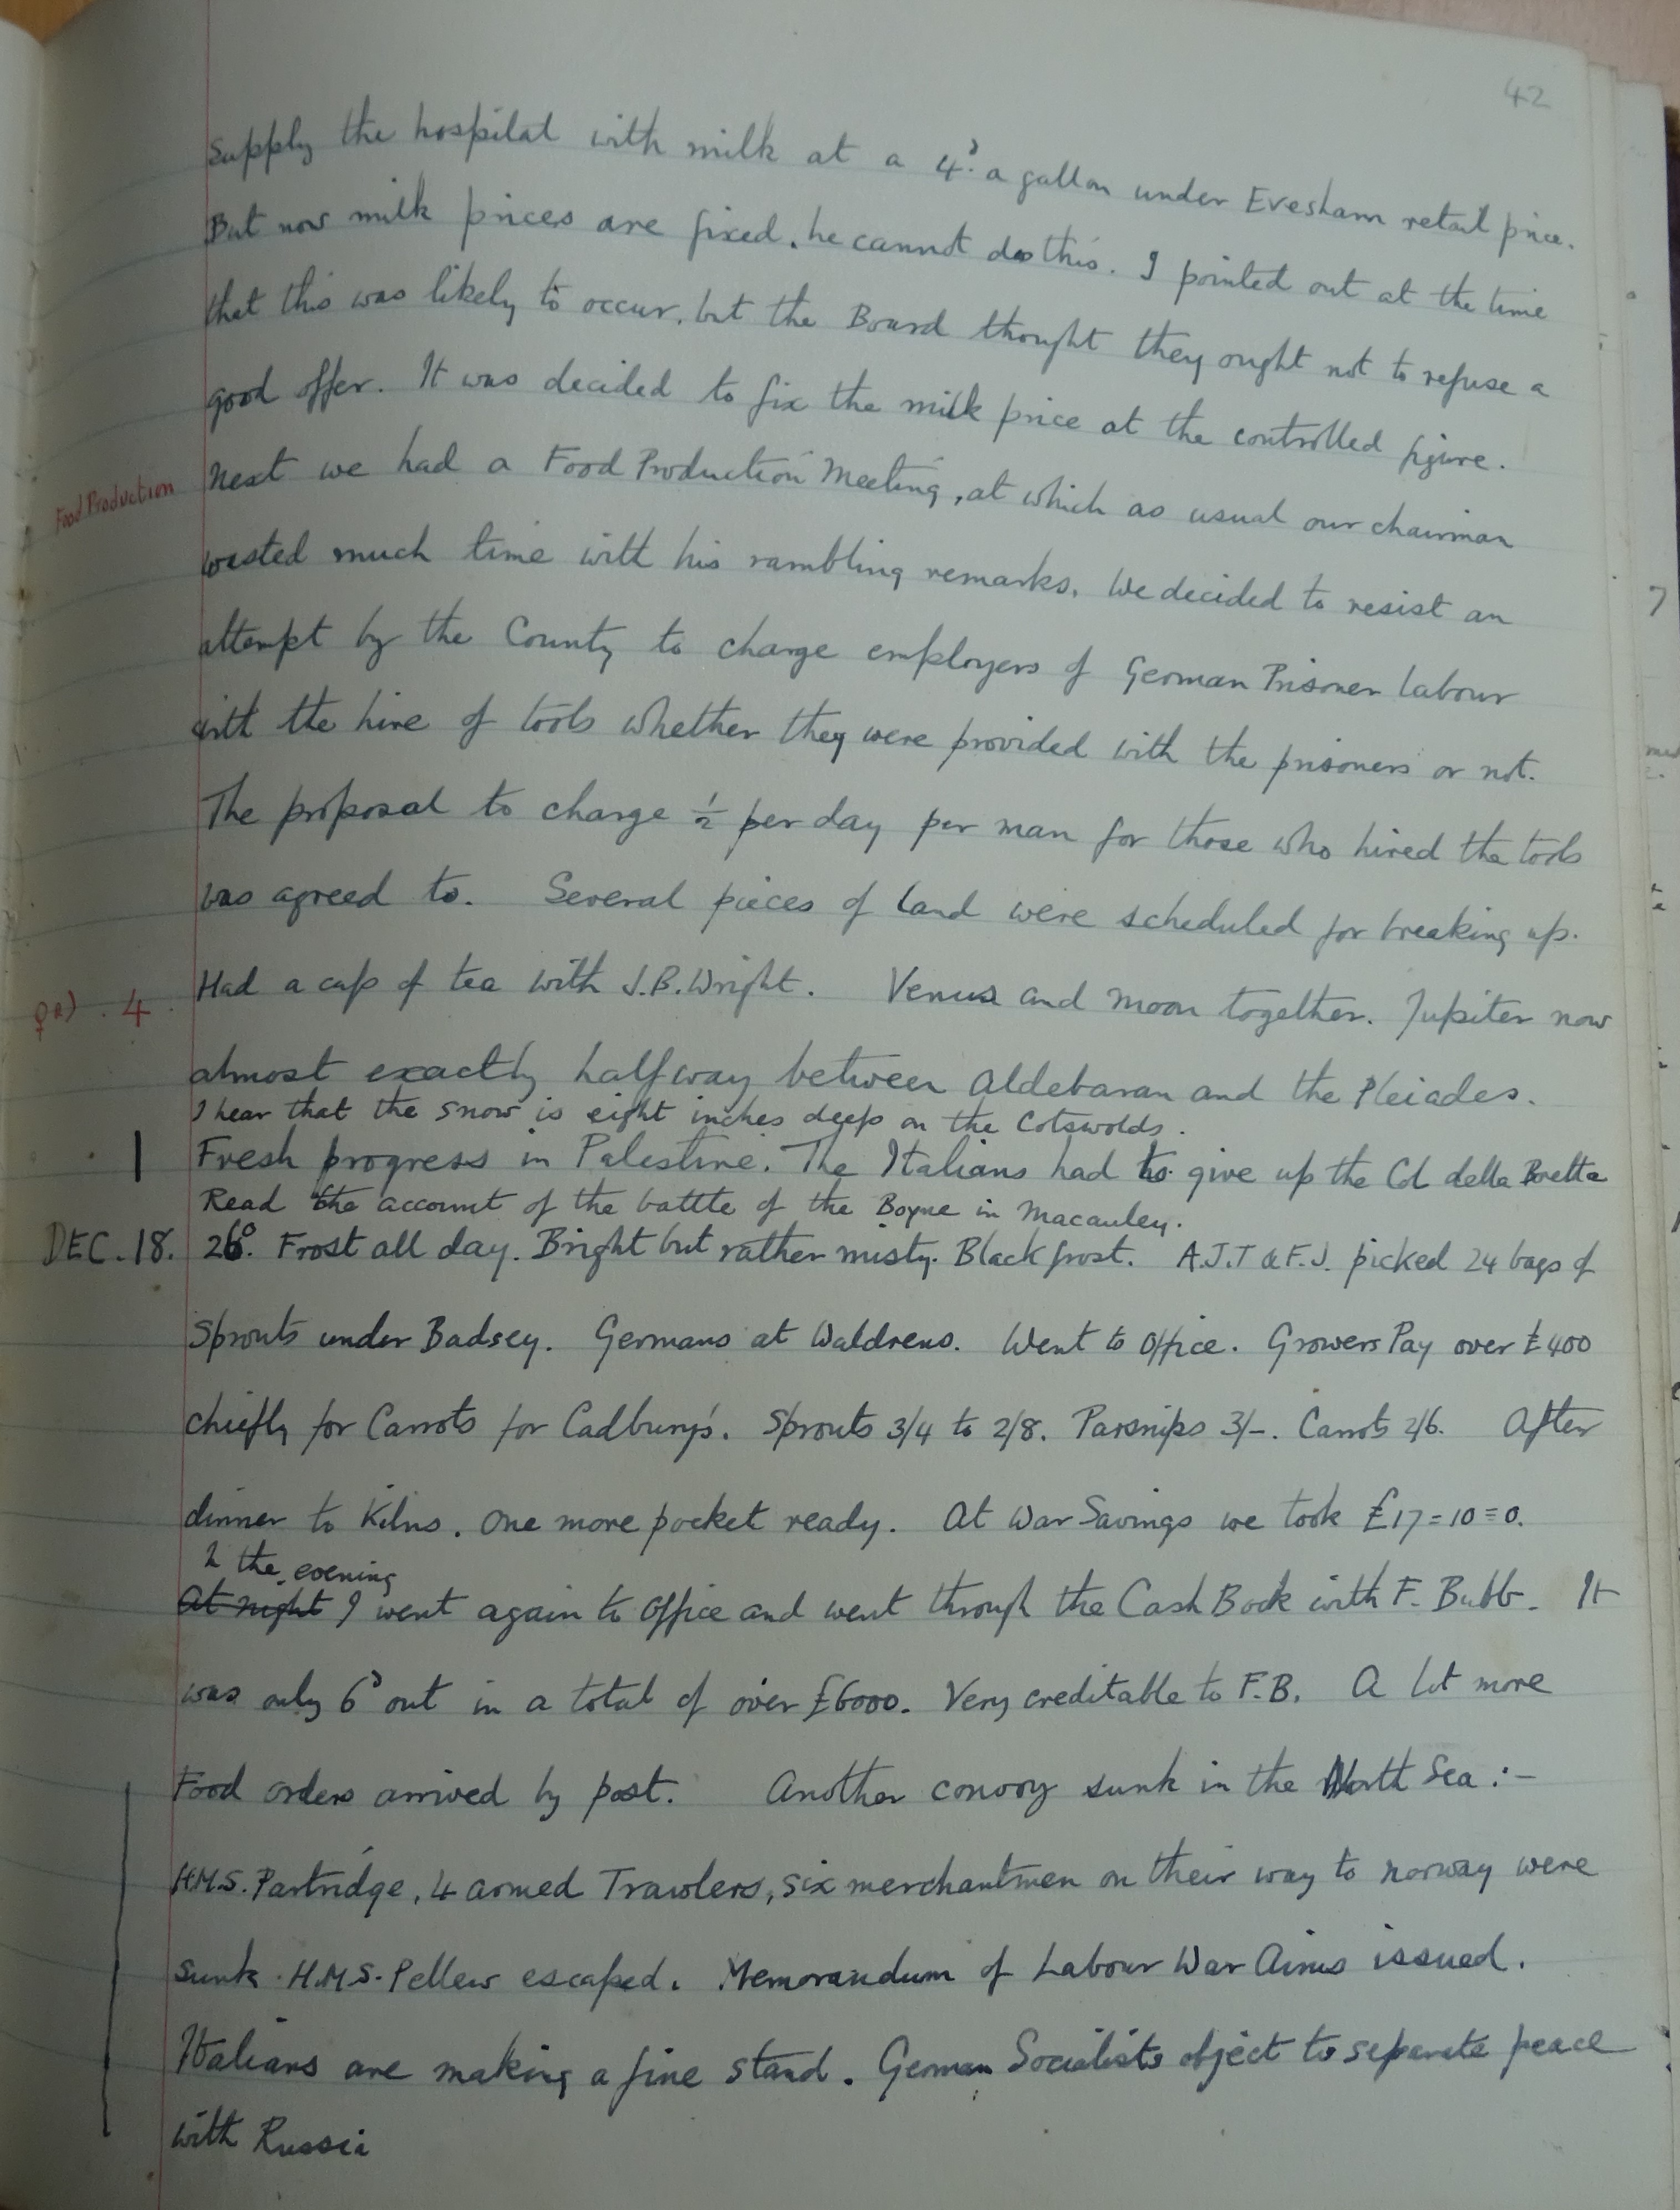 42
Supply the hospital with milk at a 4d. a gallon under Evesham retail price.
But now milk prices are fixed, he cannot do this. I pointed out at the time
that this was likely to occur, but the Board thought they ought not to refuse a
good offer. It was decided to fix the milk price at the controlled figure.
Food Production
Next we had a Food Production Meeting, at which as usual our chairman
wasted much time with his rambling remarks. We decided to resist an
attempt by the County to charge employers of German Prisoner labour
with the hire of tools whether they were provided with the prisoners or not.
The proposal to charge ½ per day per man for those who hired the tools
was agreed to. Several pieces of land were scheduled for breaking up.
♀ . 4
Had a cup of tea with J.B. Wright. Venus and Moon together. Jupiter now
almost exactly halfway between Aldebaran and the Pleiades.
I hear that the snow is eight inches deep on the Cotswolds.
Fresh progress in Palestine. The Italians had to give up the Col della Beretta
Read the account of the battle of the Boyne in Macauley.
DEC. 18. 26°. Frost all day. Bright but rather misty. Black frost. A.J.T & F.J. picked 24 bags of
Sprouts under Badsey. Germans at Waldrens. Went to Office. Growers Pay over £400
chiefly for Carrots for Cadbury's. Sprouts 3/4 to 2/8. Parsnips 3/-. Carrots 2/6. After
dinner to Kilns. One more pocket ready. At War Savings we took £17=10=0.
In the evening
At night I went again to Office and went through the Cash Book with F. Bubb. It
was only 6d out in a total of over £6000. Very creditable to F.B. A lot more
Food orders arrived by post. Another convoy sunk in the North Sea :-
H.M.S. Partridge, 4 armed Trawlers, six merchantmen on their way to Norway were
sunk. H.M.S. Pellew escaped. Memorandum of Labour War Aims issued.
Italians are making a fine stand. German Socialists object to separate peace
with Russia